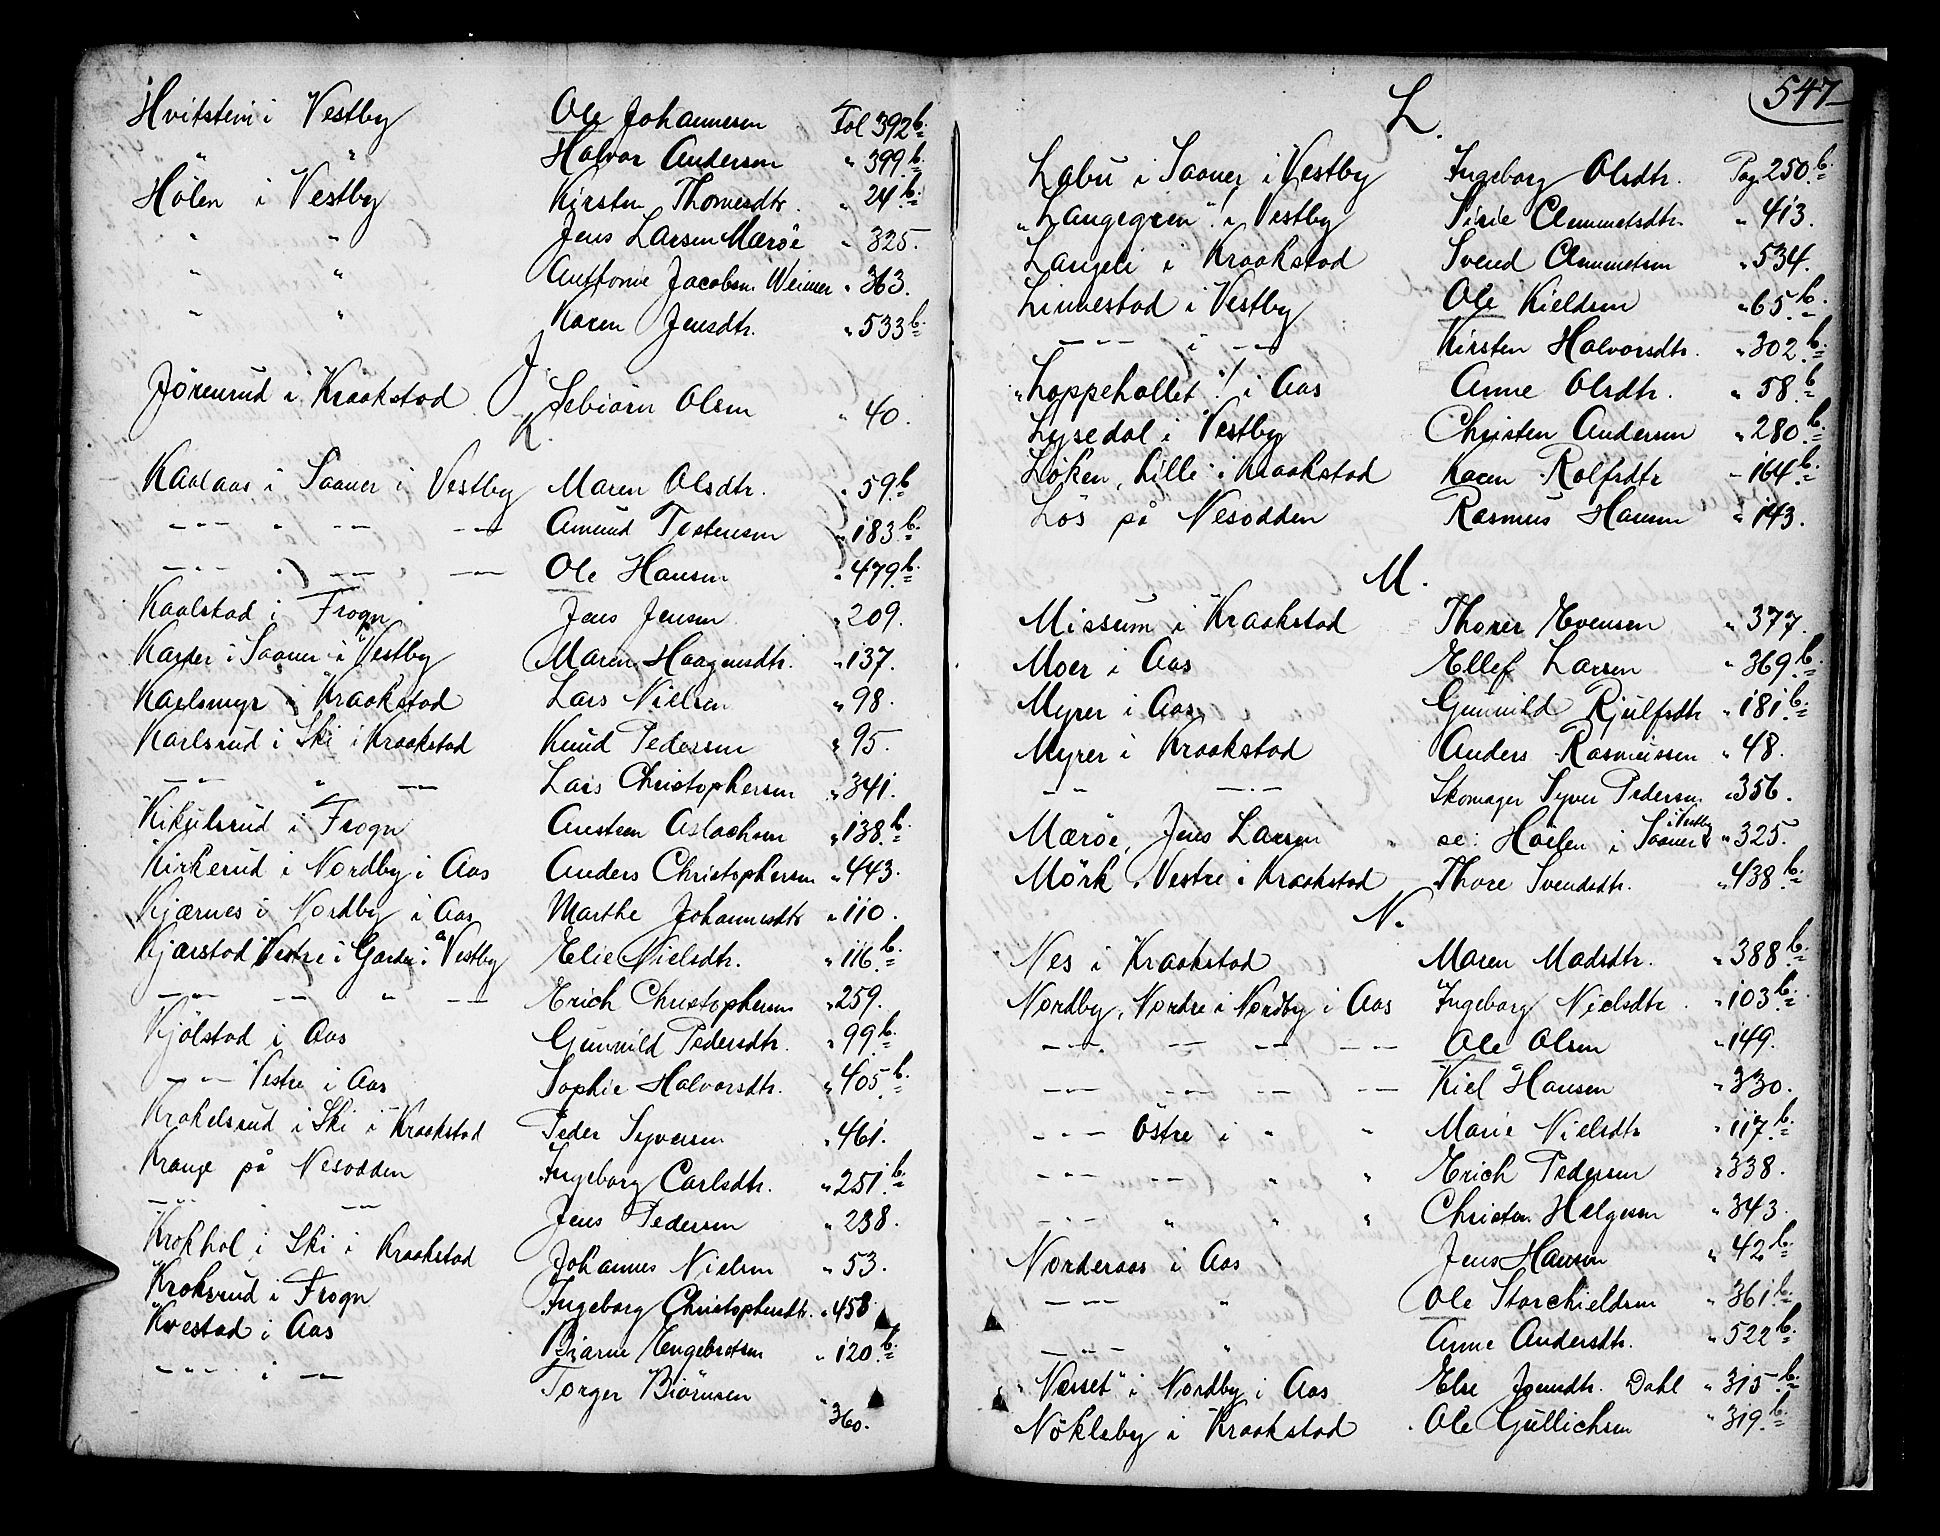 Hvitsten i Vestby Ole Johannesen Fol 392 b.
" " Halvor Andersen " 399 b.
Hölen i Vestby Kirsten Thomesdtr. " 24 b.
" " Jens Larsen Mærøe " 325.
" " Anthonie Jacobsen Weimer " 363.
" " Karen Jensdtr. " 533 b.
J.
Jörenrud i Kraakstad Sebiörn Olsen " 40.
K.
Kaalaas i Saaner i Vestby Maren Olsdtr. " 59 b
--- " -- -- Amund Tostensen " 183 b.
--- " -- -- Ole Hansen " 479 b.
Kaalstad i Frogn Jens Jensen " 209.
Kaster i Saaner i Vestby Maren Haagensdtr. " 137.
Karlsmyr i Kraakstad Lars Nielsen " 98.
Karlsrud i Ski i Kraakstad Knud Pedersen " 95.
-- -- " -- Lars Christophersen " 341.
Kikulsrud i Frogn Austeen Aslachsen " 138 b.
Kirkerud i Nordby i Aas Anders Christophersen " 443.
Kjærnes i Nordby i Aas Marthe Johannesdtr " 110.
Kjærstad Vestre i Garder i Vestby Elie Nielsdtr. " 116 b.
-- -- -- " -- Erich Christophersen " 259.
Kjölstad i Aas Gunnild Pedersdtr. " 99 b.
-- -- Vestre i Aas Sophie Halvorsdtr. " 405 b.
Krokelsrud i Ski i Kraakstad Peder Syversen " 461.
Krange på Nesodden Ingeborg Carlsdtr. " 251 b.
--- -- Jens Pedersen " 238.
Krokhol i Ski i Kraakstad Johannes Nielsen " 53.
Kroksrud i Frogn Ingeborg Christophersdtr. " 458
Kvestad i Aas Biarne Engebretsen " 120 b.
--- i -- Torger Biörnsen " 360.
547
L.
Labu i Saaner i Vestby Ingeborg Olsdtr. Pag. 250 b.
"Langegren"! i Vestby Sirie Clemmetsdtr. " 413.
Langeli i Kraakstad Svend Clemmetsen " 534.
Linnestad i Vestby Ole Kieldsen " 65 b.
--- i -- Kirsten Halvorsdtr. " 302 b.
"Loppehollet"! i Aas Anne Olsdtr. " 58 b
Lysedal i Vestby Christen Andersen " 280 b.
Löken, Lille i Kraakstad Karen Rolfsdtr - 164 b.
Lös på Nesodden Rasmus Hansen " 143.
M.
Missum i Kraakstad Thorer Evensen " 377.
Moer i Aas Ellef Larsen " 369 b.
Myrer i Aas Gunnild Rjulfsdtr " 181 b.
Myrer i Kraakstad Anders Rasmussen " 48.
-- -- -- Skomager Syver Pedersen " 356.
Mærøe, Jens Larsen se: Höelen i Saaner i Vestby " 325.
Mörk, Vestre i Kraakstad Thore Svendsdtr. " 438 b.
N.
Nes i Kraakstad Maren Madsdtr. " 388 b.
Nordby, Nordre i Nordby i Aas Ingeborg Nielsdtr. " 103 b.
--- -- -- -- Ole Olsen " 149.
--- -- -- -- Kiel Hansen " 330.
--- Östre i " " Marie Nielsdtr " 117 b.
--- -- " " Erich Pedersen " 338.
--- " " " Christen Helgesen " 343.
Norderaas i Aas Jens Hansen " 42 b.
--- " Ole Storchieldsen " 361 b.
--- " Anne Andersdtr. " 522 b.
"Næsset" i Nordby i Aas Else Jensdtr. Dahl " 315 b.
Nökleby i Kraakstad Ole Gullichsen " 319 b.